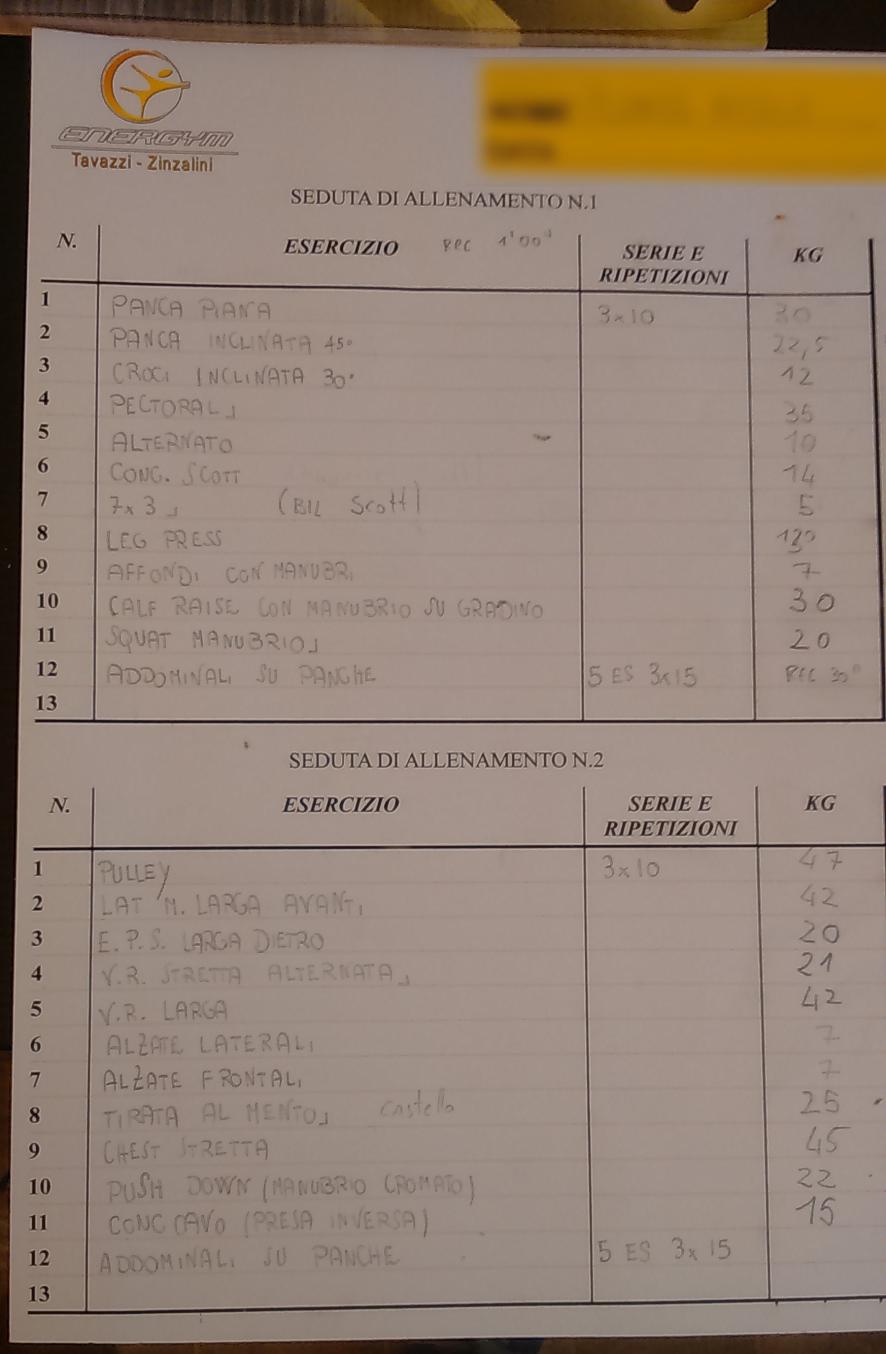 ENERGYM
Tavazzi - Zinzalini
SEDUTA DI ALLENAMENTO N.1
N. ESERCIZIO REC 1'00" SERIE E RIPETIZIONI KG
1 PANCA PIANA 3x10 30
2 PANCA INCLINATA 45° 22,5
3 CROCI INCLINATA 30° 12
4 PECTORAL 35
5 ALTERNATO 10
6 CONC. SCOTT 14
7 7x3 (BIL Scott) 5
8 LEG PRESS 130
9 AFFONDI CON MANUBRI 7
10 CALF RAISE CON MANUBRIO SU GRADINO 30
11 SQUAT MANUBRIO 20
12 ADDOMINALI SU PANCHE 5 ES 3x15 REC 30"
13
SEDUTA DI ALLENAMENTO N.2
N. ESERCIZIO SERIE E RIPETIZIONI KG
1 PULLEY 3x10 47
2 LAT M. LARGA AVANTI 42
3 E.P.S. LARGA DIETRO 20
4 V.R. STRETTA ALTERNATA 21
5 V.R. LARGA 42
6 ALZATE LATERALI 7
7 ALZATE FRONTALI 7
8 TIRATA AL MENTO Castello 25
9 CHEST STRETTA 45
10 PUSH DOWN (MANUBRIO CROMATO) 22
11 CONC CAVO (PRESA INVERSA) 15
12 ADDOMINALI SU PANCHE 5 ES 3x15
13